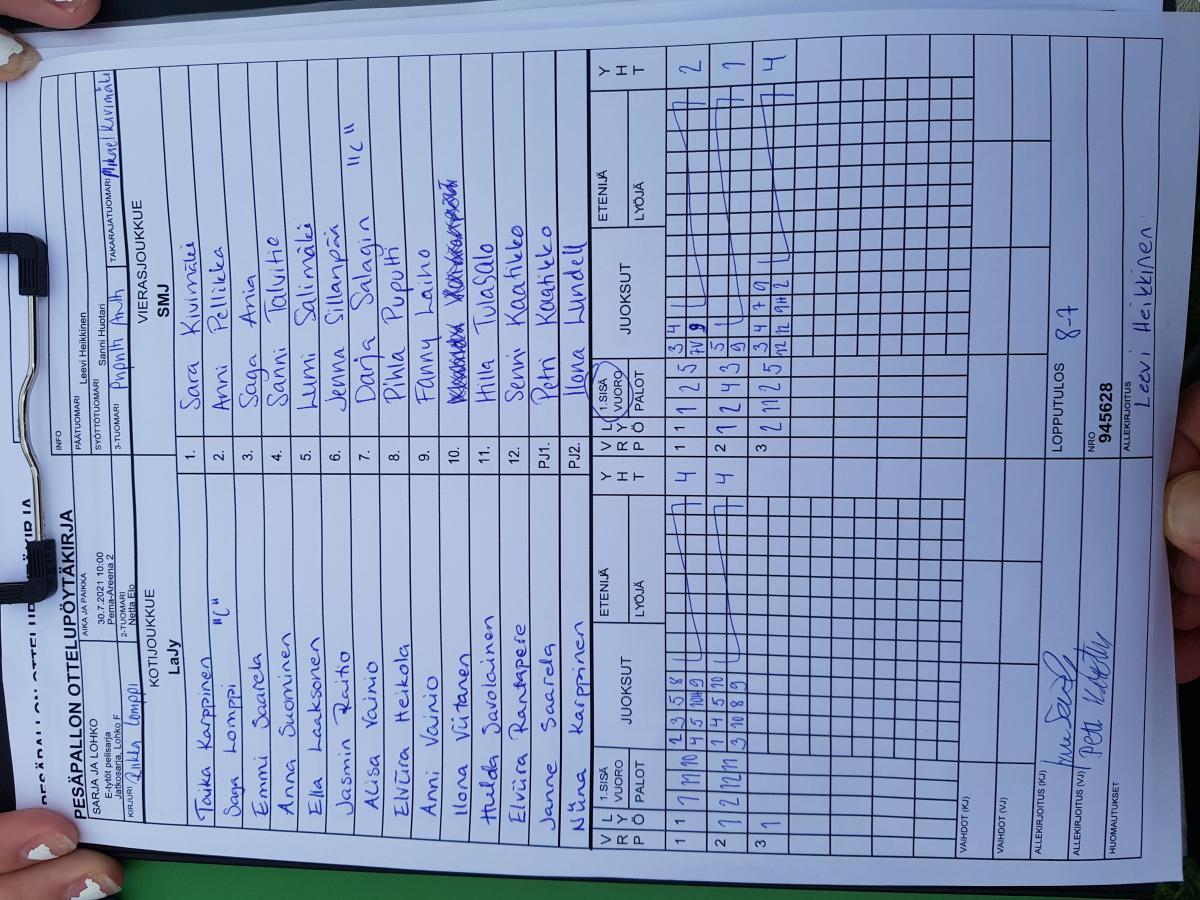 PESÄPALLON OTTELUPÖYTÄKIRJA
SARJA JA LOHKO
E-tytöt pelisarja
Jatkosarja, Lohko F
AIKA JA PAIKKA
30.7.2021 10:00
Pema-Areena 2
INFO
PÄÄTUOMARI Leevi Heikkinen
SYÖTTÖTUOMARI Sanni Huotari
TAKARAJATUOMARI Mikael Kivimäki
KIRJURI Riikka Lomppi
2-TUOMARI
Netta Elo
3-TUOMARI
KOTIJOUKKUE
LaJy
VIERASJOUKKUE
SMJ
Taika Karppinen 1. Sara Kivimäki
Saga Lomppi "C" 2. Anni Pellikka
Emmi Saarela 3. Saga Ania
Anna Suominen 4. Sanni Talvitie
Ella Laaksonen 5. Lumi Salimäki
Jasmin Raitio 6. Jenna Sillanpää
Alisa Vainio 7. Darja Salagin "C"
Elviira Heikola 8. Pihla Puputti
Anni Vainio 9. Fanny Laiho
Ilona Viitanen 10.
Hulda Savolainen 11. Hilla Tulasalo
Elviira Rantapere 12. Senni Kaatikko
Janne Saarela PJ1. Petri Kaatikko
Niina Karppinen PJ2. Ilona Lundell
V R P L Y Ö 1.SISÄ VUORO PALOT JUOKSUT ETENIJÄ LYÖJÄ Y H T V R P L Y Ö 1.SISÄ VUORO PALOT JUOKSUT ETENIJÄ LYÖJÄ Y H T
2 3 5 8 3 4 1
1 1 1 11 10 4 5 10H 9 4 1 1 1 2 5 7V 9 2
1 4 5 10 5
2 1 2 12 11 3 10 8 9 4 2 1 2 4 3 9 1
3 4 7 9
3 1 3 2 11 12 5 12 12 9H 2 4
VAIHDOT (KJ)
VAIHDOT (VJ)
ALLEKIRJOITUS (KJ)
LOPPUTULOS 8-7
ALLEKIRJOITUS (VJ)
NRO
945628
HUOMAUTUKSET
ALLEKIRJOITUS
Leevi Heikkinen